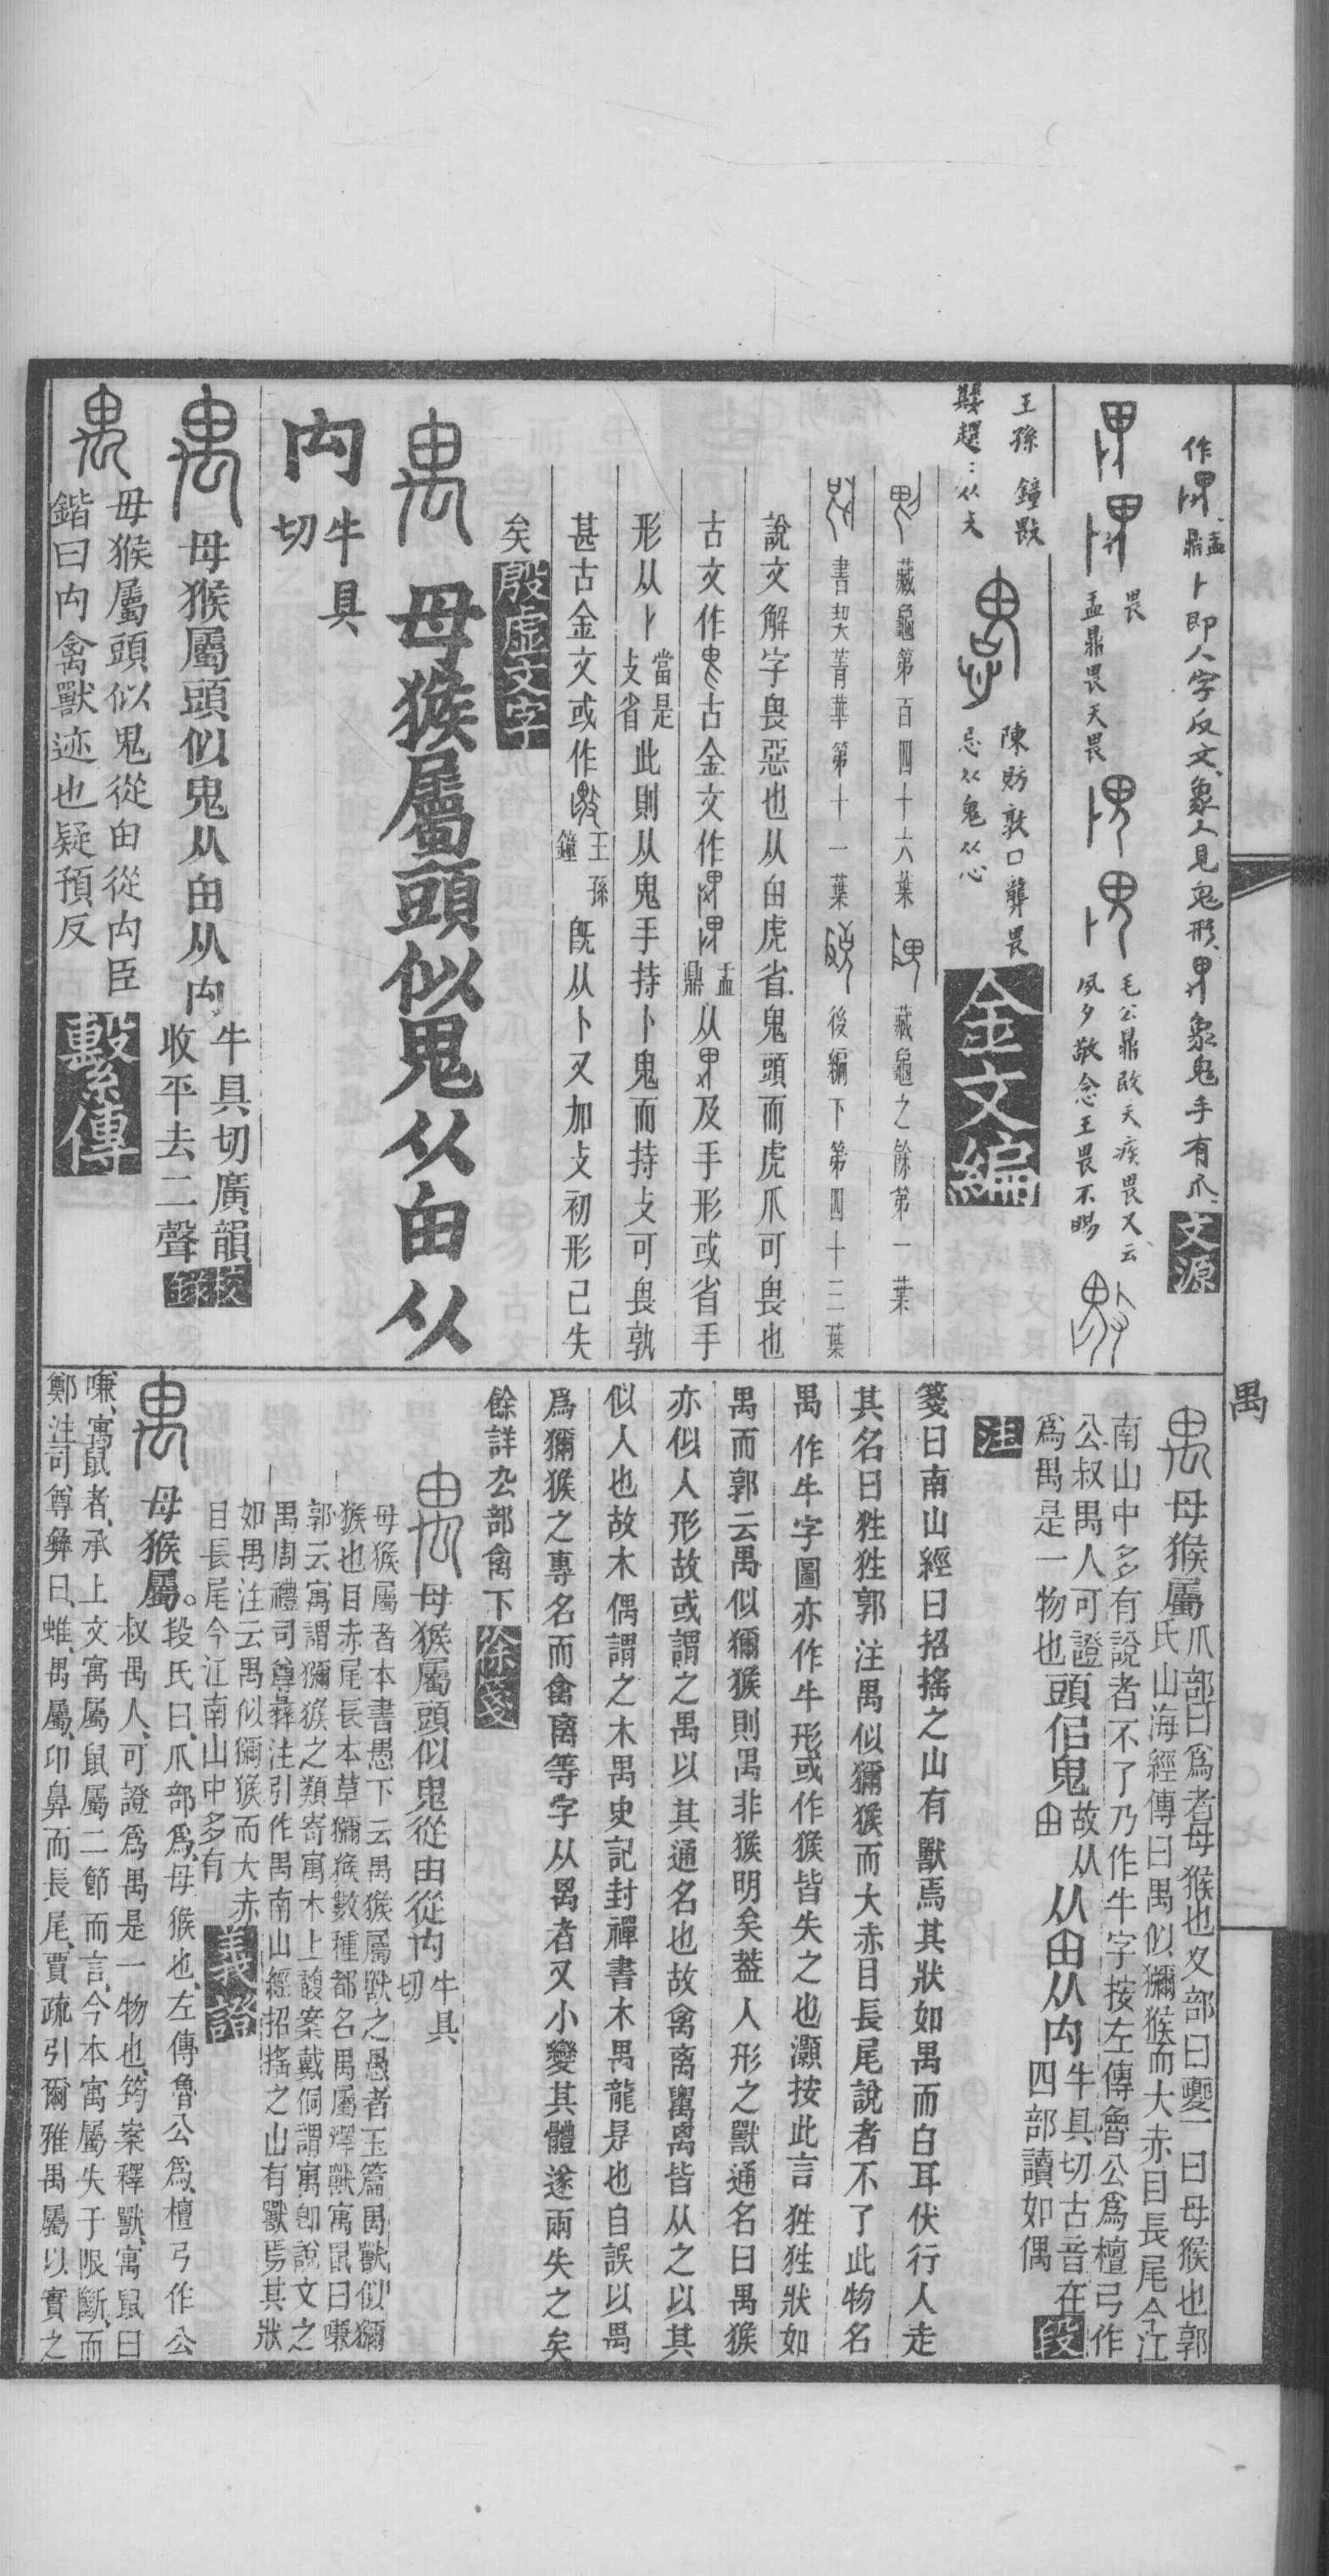 作 盂鼎 卜即人字反文象人見鬼形 象鬼手有爪 文源
畏
盂鼎畏天畏
毛公鼎敃天疾畏又云
夙夕敬念王畏不睗
王孫鐘畏
趩趩从攴
陳肪敦口龏畏
忌从鬼从心
金文編
藏龜第百四十六葉 藏龜之餘第一葉
書契菁華第十一葉 後編下第四十三葉
說文解字畏惡也从甶虎省鬼頭而虎爪可畏也
古文作 古金文作 盂鼎 从 及手形或省手
形从卜 當是攴省 此則从鬼手持卜鬼而持攴可畏孰
甚古金文或作 王孫鐘 旣从卜又加攴初形已失
矣 殷虛文字
禺 母猴屬頭似鬼从甶从
禸 牛具切
禺 母猴屬頭似鬼从甶从禸 牛具切廣韻收平去二聲 校錄
禺 毋猴屬頭似鬼從甶從禸臣
鍇曰禸禽獸迹也疑預反 繫傳
禺
禺 母猴屬 爪部曰爲者母猴也夊部曰夒一曰母猴也郭
氏山海經傳曰禺似獼猴而大赤目長尾今江
南山中多有說者不了乃作牛字按左傳魯公爲檀弓作
公叔禺人可證
爲禺是一物也 頭佀鬼 故从甶 从甶从禸 牛具切古音在四部讀如偶 段
注
箋曰南山經曰招搖之山有獸焉其狀如禺而白耳伏行人走
其名曰狌狌郭注禺似獼猴而大赤目長尾說者不了此物名
禺作牛字圖亦作牛形或作猴皆失之也灝按此言狌狌狀如
禺而郭云禺似獼猴則禺非猴明矣葢人形之獸通名曰禺猴
亦似人形故或謂之禺以其通名也故禽离䙲离皆从之以其
似人也故木偶謂之木禺史記封禪書木禺龍是也自誤以禺
爲獼猴之專名而禽离等字从禺者又小變其體遂兩失之矣
餘詳厹部禽下 徐箋
禺 母猴屬頭似鬼從甶從禸 牛具切
母猴屬者本書愚下云禺猴屬獸之愚者玉篇禺獸似獼
猴也目赤尾長本草獼猴數種都名禺屬釋獸寓鼠曰嗛
郭云寓謂獼猴之類寄寓木上馥案戴侗謂寓卽說文之
禺周禮司尊彝注引作禺南山經招搖之山有獸焉其狀
如禺注云禺似獼猴而大赤
目長尾今江南山中多有 義證
禺 母猴屬。 段氏曰、爪部爲、母猴也、左傳魯公爲、檀弓作公
叔禺人、可證爲禺是一物也、筠案釋獸、寓鼠曰
嗛、寓鼠者、承上文寓屬鼠屬二節而言、今本寓屬失于限斷、而
鄭注司尊彝曰、蜼、禺屬、卬鼻而長尾、賈疏引爾雅禺屬以實之